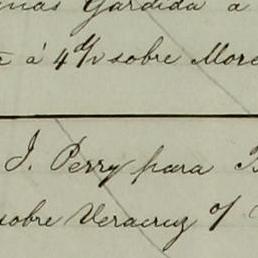 Gardida a
á 4 % sobre More
J. Perry para B
sobre Veracruz o/